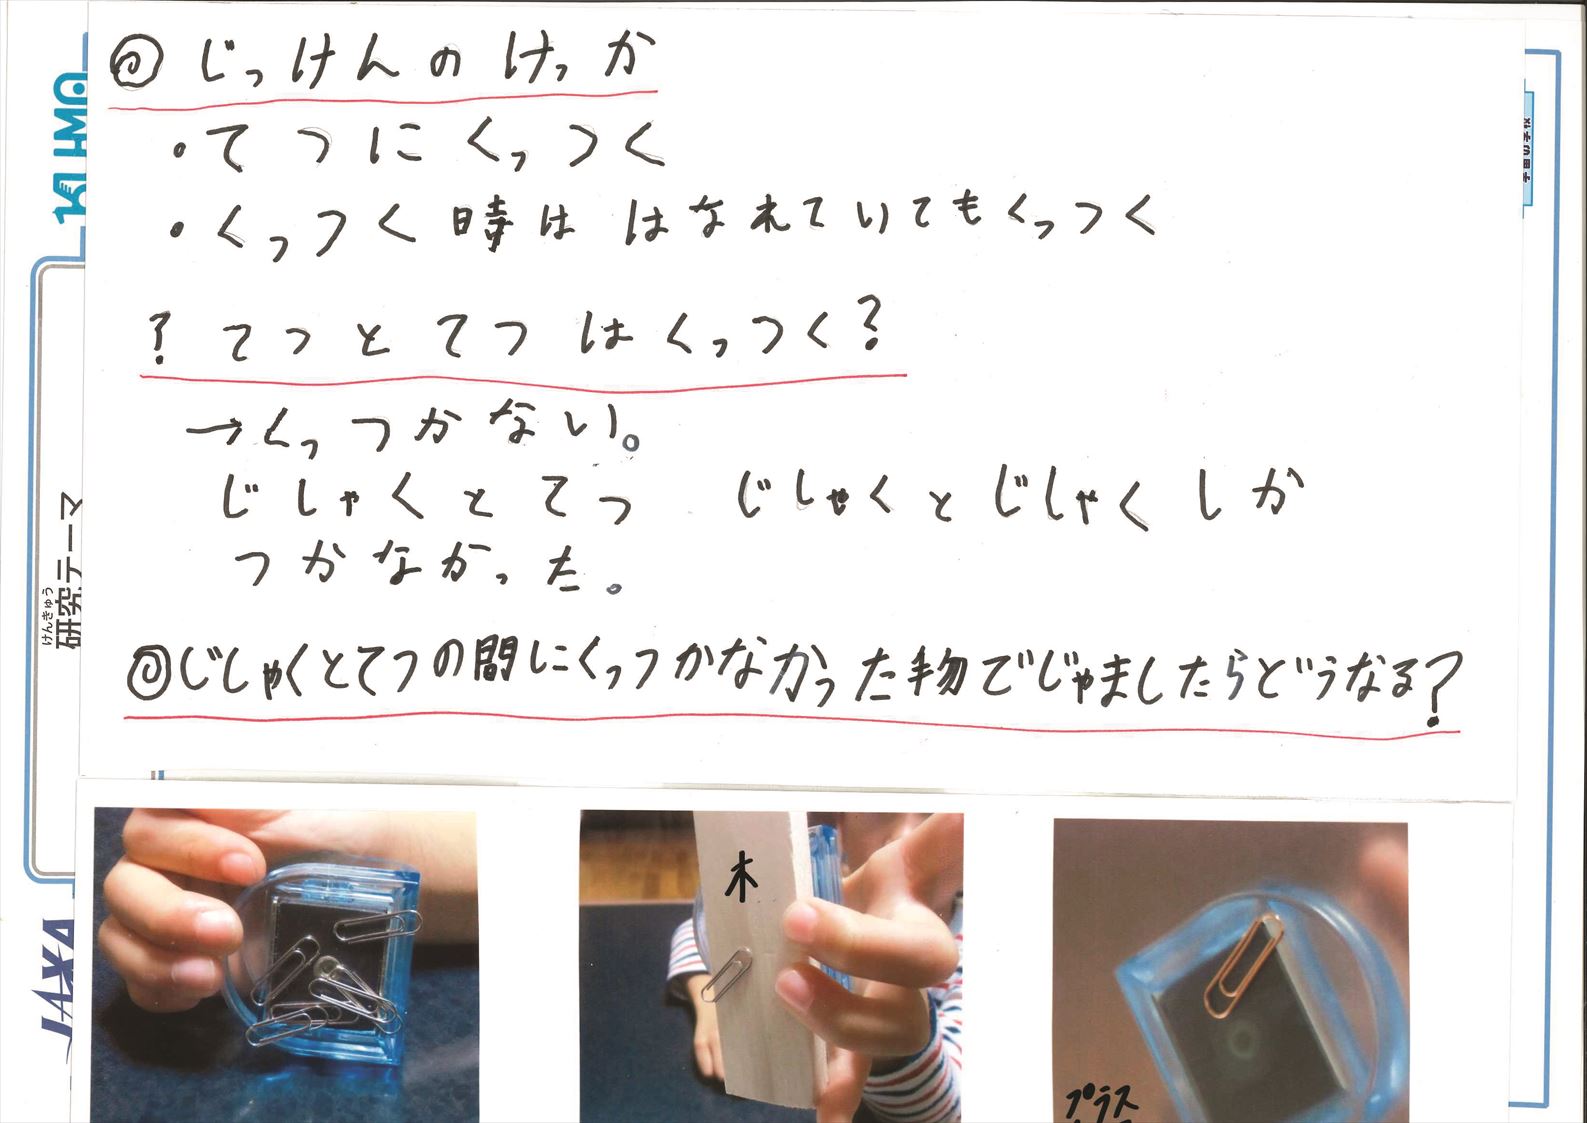 ◎ じっけんの けっか
・てつに くっつく
・くっつく 時は はなれていてもくっつく
? てつと てつ はくっつく?
→くっつかない。
じしゃくと てつ じしゃくとじしゃくしか
つかなかった。
◎じしゃくとてつの間にくっつかなかった物でじゃましたらどうなる?
木
プラス
KU-MA
けんきゅう
研究テーマ
JAXA
宇宙の学校